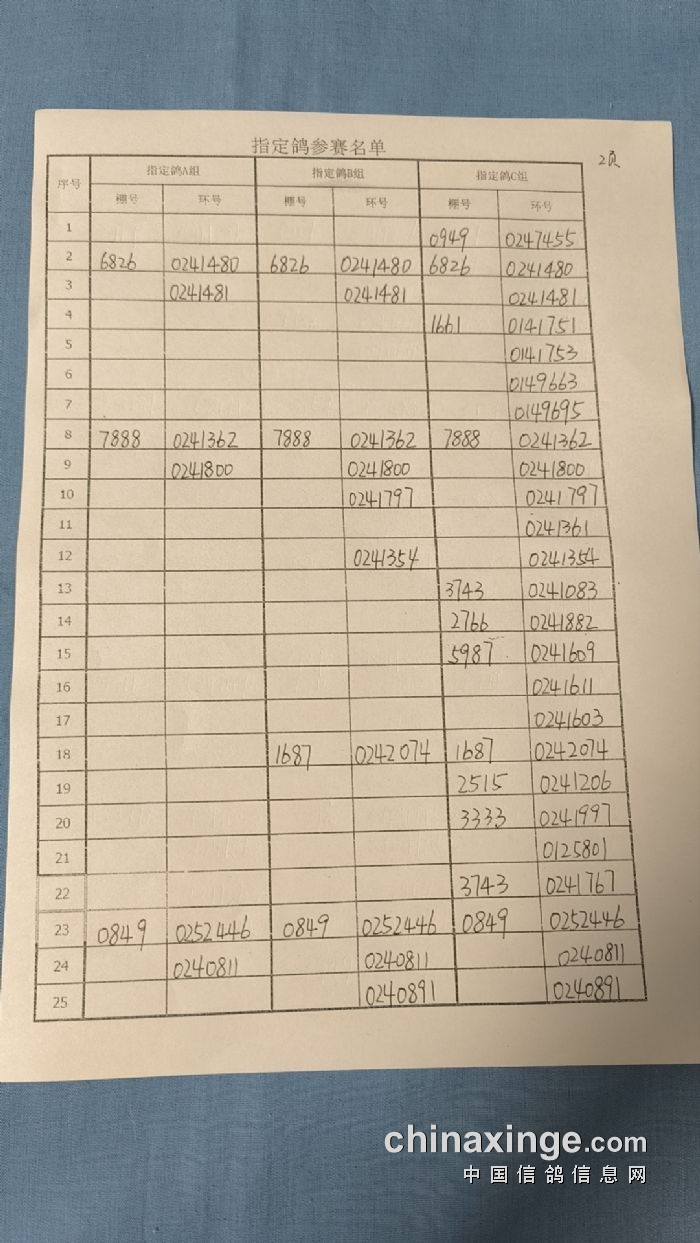 指定鸽参赛名单
2页
序号 指定鸽A组 指定鸽B组 指定鸽C组
棚号 环号 棚号 环号 棚号 环号
1 0949 0247455
2 6826 0241480 6826 0241480 6826 0241480
3 0241481 0241481 0241481
4 1661 0141751
5 0141753
6 0149663
7 0149695
8 7888 0241362 7888 0241362 7888 0241362
9 0241800 0241800 0241800
10 0241797 0241797
11 0241361
12 0241354 0241354
13 3743 0241083
14 2766 0241882
15 5987 0241609
16 0241611
17 0241603
18 1687 0242074 1687 0242074
19 2515 0241206
20 3333 0241997
21 0125801
22 3743 0241767
23 0849 0252446 0849 0252446 0849 0252446
24 0240811 0240811 0240811
25 0240891 0240891
chinaxinge.com
中国信鸽信息网